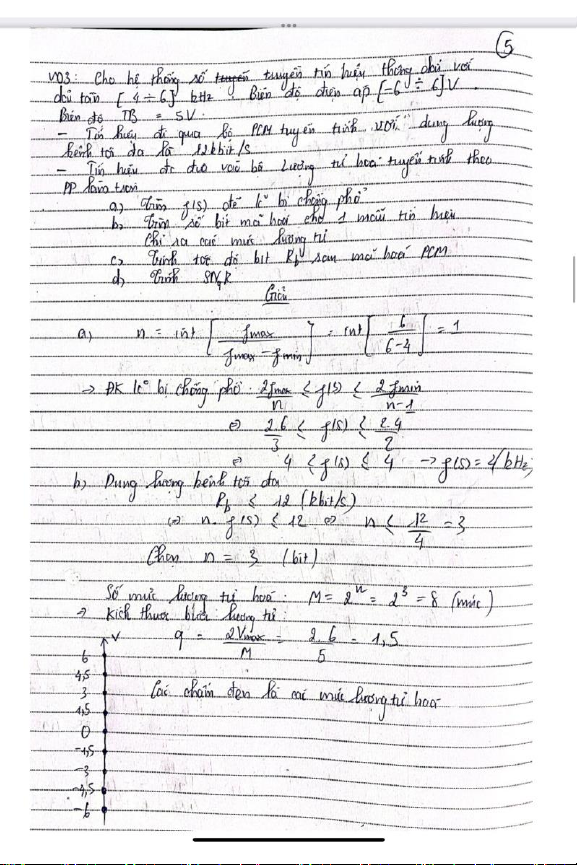 5
VD3: Cho hệ thống số truyền tín hiệu thông dải với
dải tần [4 ÷ 6] kHz. Biên độ điện áp [-6 ÷ 6] V.
Biên độ TB = 5V.
- Tín hiệu đi qua bộ PCM tuyến tính với dung lượng
kênh tối đa là 12kbit/s
- Tín hiệu đc đưa vào bộ lượng tử hoá tuyến tính theo
PP làm tròn
a) Tìm f(s) để k° bị chồng phổ
b, Tìm số bit mã hoá cho 1 mẫu tín hiệu
Chỉ ra các mức lượng tử
c, Tính tốc độ bit Rb sau mã hoá PCM
d, Tính SNqR
Giải
a) n = int [fmax / fmax - fmin] = int [6 / 6-4] = 1
→ ĐK k° bị chồng phổ: 2fmax / n ≤ f(s) ≤ 2fmin / n-1
⇔ 2.6 / 3 ≤ f(s) ≤ 2.4 / 2
⇔ 4 ≤ f(s) ≤ 4 → f(s) = 4 (kHz)
b) Dung lượng kênh tối đa
Rb ≤ 12 (kbit/s)
⇔ n. f(s) ≤ 12 ⇔ n ≤ 12 / 4 = 3
Chọn n = 3 (bit)
Số mức lượng tử hoá: M = 2^n = 2^3 = 8 (mức)
⇒ Kích thước bước lượng tử:
q = 2Vmax / M = 2.6 / 5 = 1,5
V
6
4,5
3
Các chấm đen là các mức lượng tử hoá
1,5
0
-1,5
-3
-4,5
-6